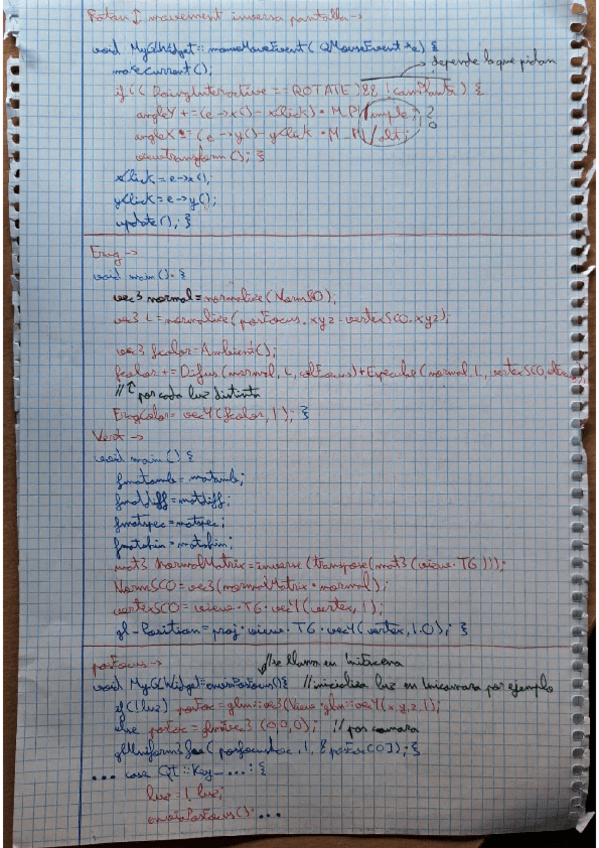 Rotan ↕ movement inversa pantalla →
void MyGLWidget::mouseMoveEvent(QMouseEvent *e) {
makeCurrent();
depende lo que pidan
if ((DoingInteractive == ROTATE) && !camPlanta) {
angleY += (e→x() - xClick) * M_PI/ample; ?
angleX = (e→y() - yClick * M_PI/alt;
viewTransform(); }
xClick = e→x();
yClick = e→y();
update(); }
Frag →
void main() {
vec3 normal = normalize(NormSCO);
vec3 L = normalize(posFocus.xyz - vertexSCO.xyz);
vec3 fcolor = Ambient();
fcolor += Difus(normal, L, colFocus) + Especular(normal, L, vertexSCO,
// ↑ por cada luz distinta
FragColor = vec4(fcolor, 1); }
Vert →
void main() {
fmatamb = matamb;
fmatdiff = matdiff;
fmatspec = matspec;
fmatshin = matshin;
mat3 NormalMatrix = inverse(transpose(mat3(view * TG)));
NormSCO = vec3(normalMatrix * normal);
vertexSCO = view * TG * vec4(vertex, 1);
gl_Position = proj * view * TG * vec4(vertex, 1.0); }
posFocus →
// se llama en IniEscena
void MyGLWidget::enviaPosFocus() { // inicializa luz en Inicamara por ejemplo
if (!luz) posFoc = glm::vec3(View * glm::vec4(x, y, z, 1);
else posFoc = glm::vec3 (0,0,0); // pos camara
glUniform3f (posfocusLoc, 1, &posFoc[0]); }
... case Qt::Key_...: {
luz = !luz;
enviaPosFocus() ...